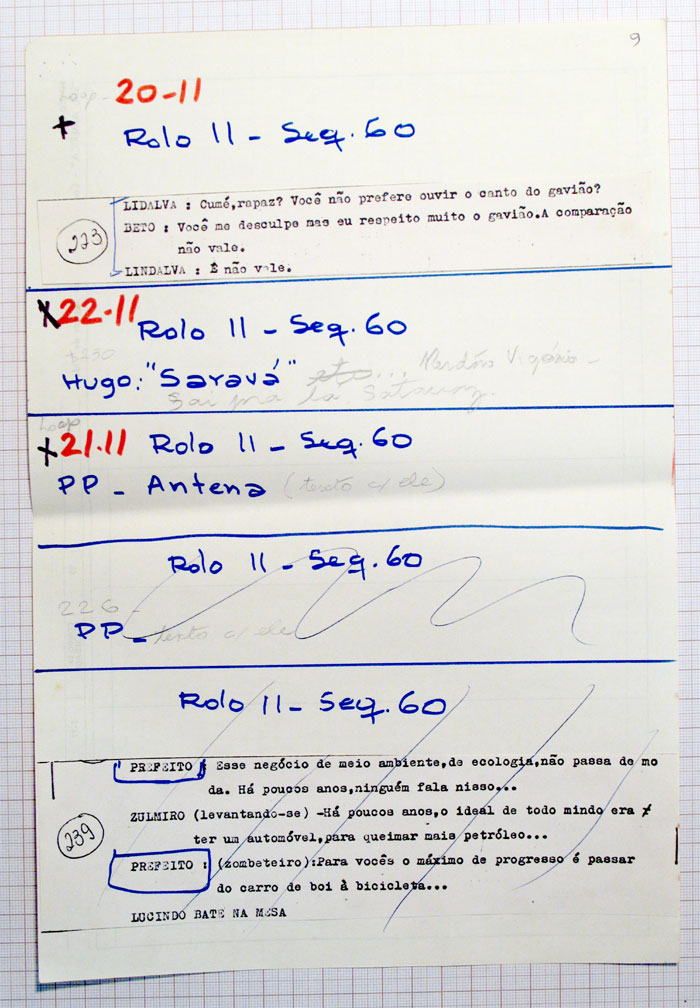 9
Loop - 20-11
+ Rolo 11 - Seq. 60
LIDALVA : Cumé,rapaz? Você não prefere ouvir o canto do gavião?
223
BETO : Você me desculpe mas eu respeito muito o gavião.A comparação
não vale.
LINDALVA : É não vale.
X 22-11 Rolo 11 - Seq. 60
+230
Hugo: "Saravá" eto...
Sai pra lá
Loop
+ 21.11 Rolo 11 - Seq. 60
PP - Antena (texto c/ ele)
Rolo 11 - Seq. 60
226 -
PP - texto c/ ele
Rolo 11 - Seq. 60
PREFEITO : Esse negócio de meio ambiente,de ecologia,não passa de mo
da. Há poucos anos,ninguém fala nisso...
239
ZULMIRO (levantando-se) -Há poucos anos,o ideal de todo mindo era
ter um automóvel,para queimar mais petróleo...
PREFEITO : (zombeteiro):Para vocês o máximo de progresso é passar
do carro de boi à bicicleta...
LUCINDO BATE NA MESA